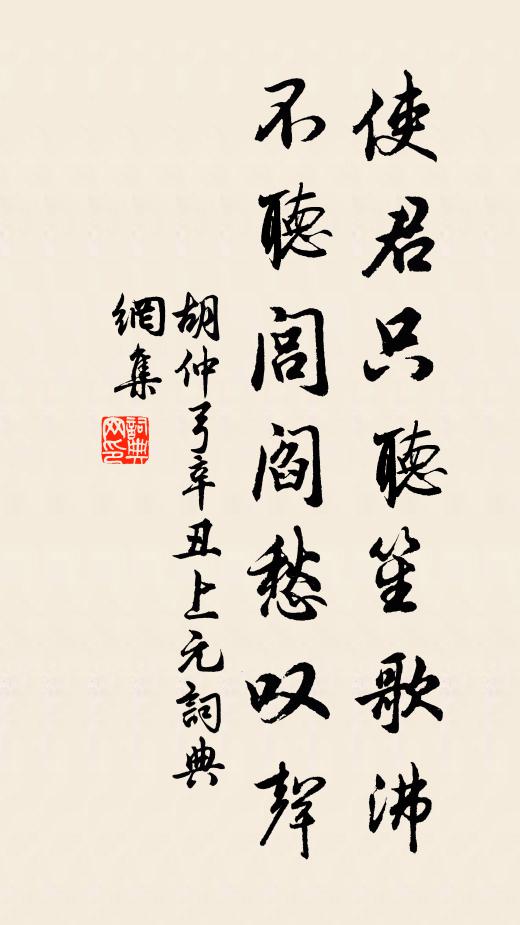 使君只聽笙歌沸
不聽閭閻愁叹聲
胡仲弓辛丑上元詞典
網集
詞典網印